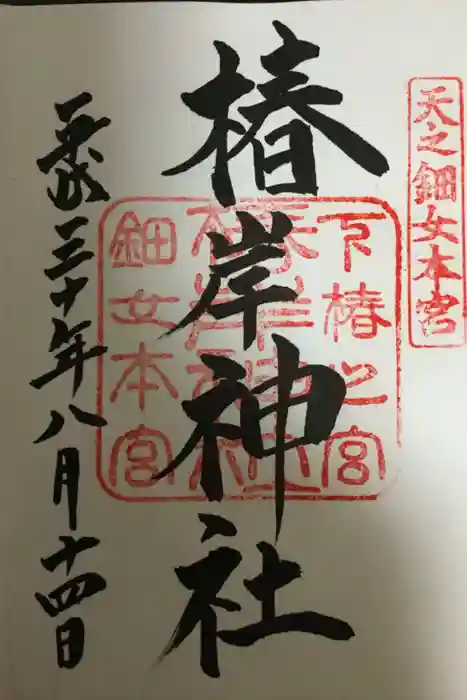 天之鈿女本宮
椿岸神社
下椿之宮
椿岸神社
鈿女本宮
平成三十年八月十四日